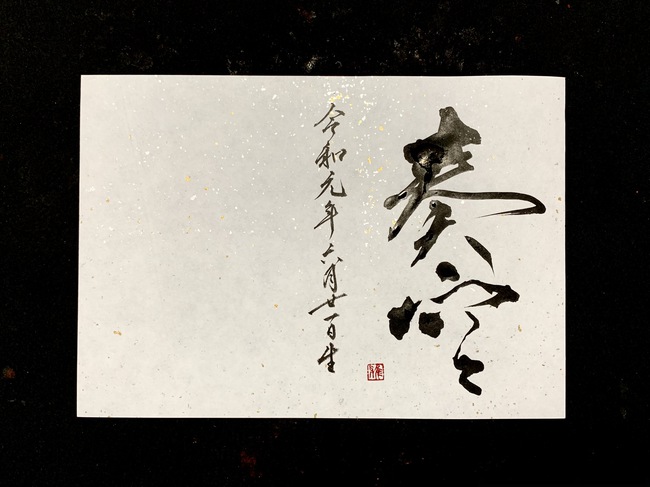 奏空
令和元年六月廿一日生